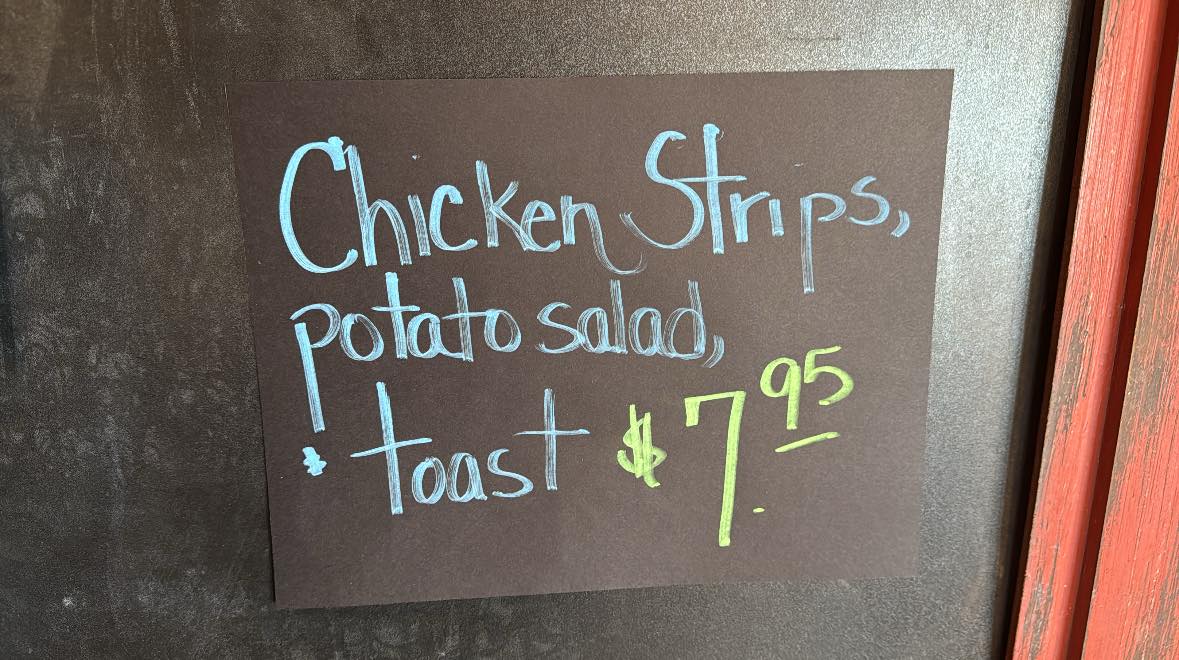 Chicken Strips,
potato salad,
& toast $7.95